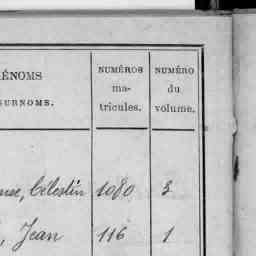 ÉNOMS
SURNOMS.
NUMÉROS
ma-
tricules.
NUMÉRO
du
volume.
Célestin 1080 3
, Jean 116 1